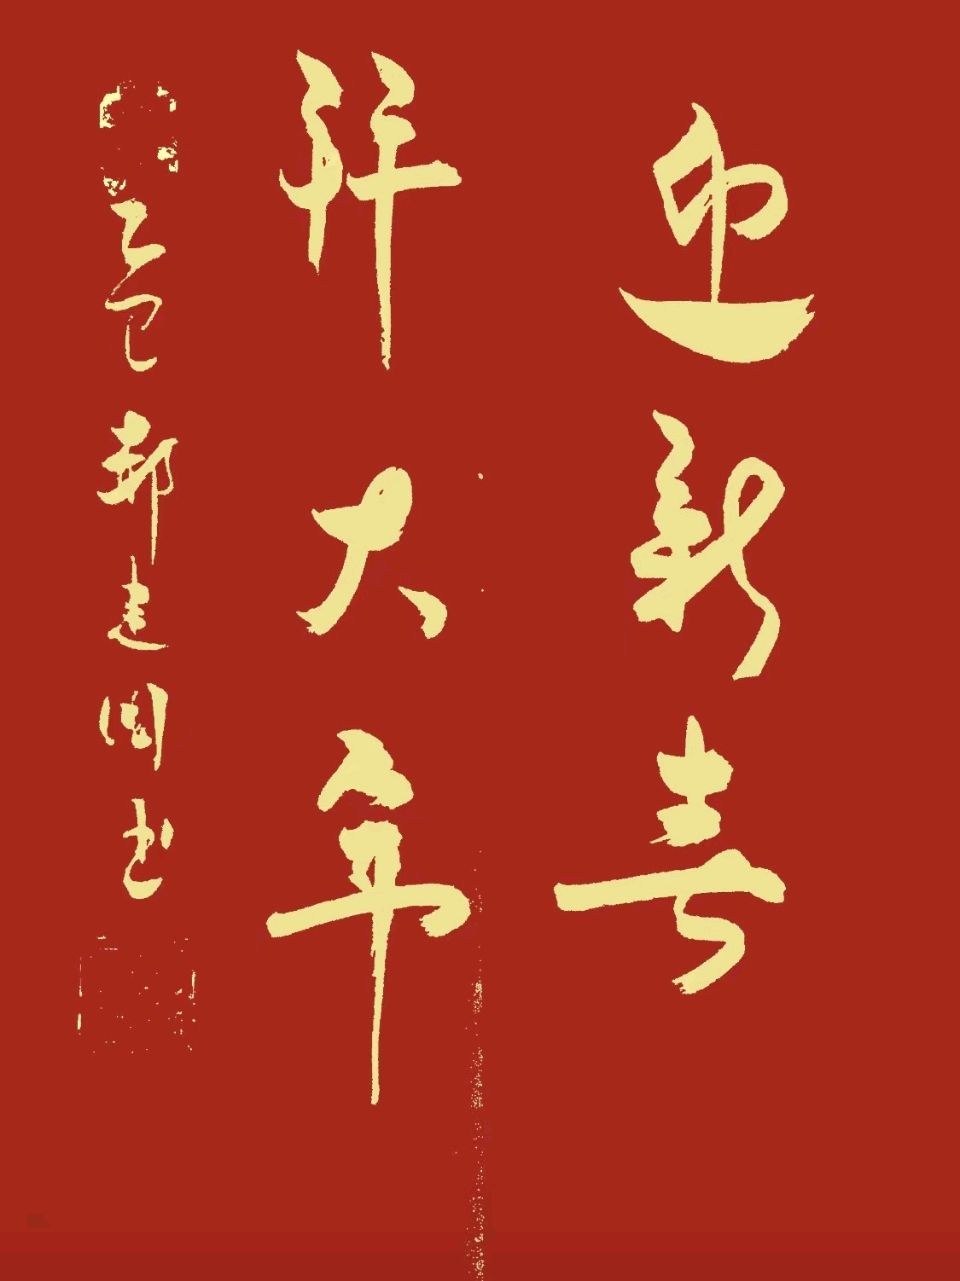 迎新喜
拜大年
乙巳 郝建国书